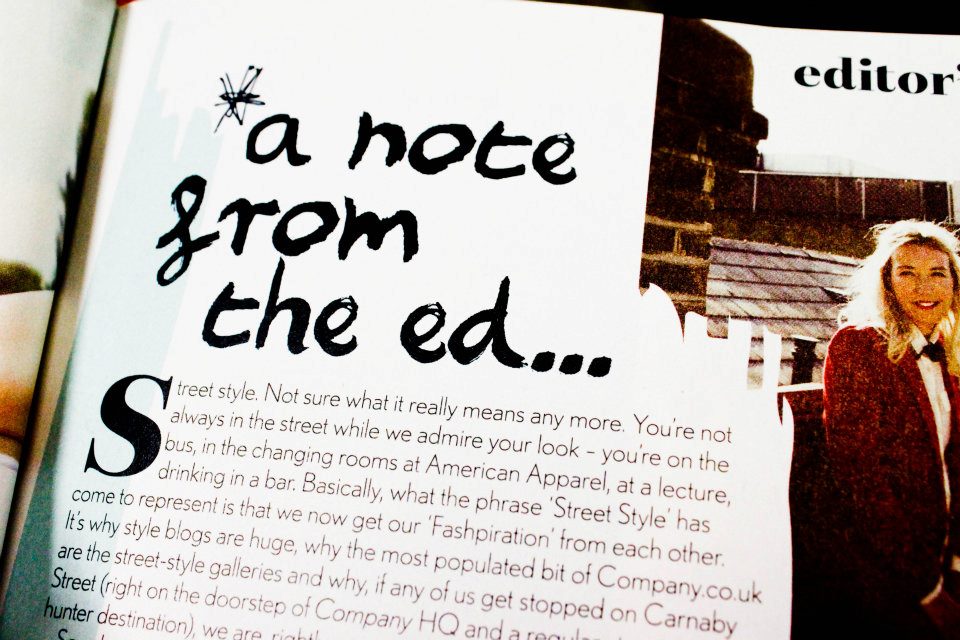 editor's
*a note
from
the ed...
Street style. Not sure what it really means any more. You're not
always in the street while we admire your look – you're on the
bus, in the changing rooms at American Apparel, at a lecture,
drinking in a bar. Basically, what the phrase 'Street Style' has
come to represent is that we now get our 'Fashpiration' from each other.
It's why style blogs are huge, why the most populated bit of Company.co.uk
are the street-style galleries and why, if any of us get stopped on Carnaby
Street (right on the doorstep of Company HQ and a
hunter destination), we are,